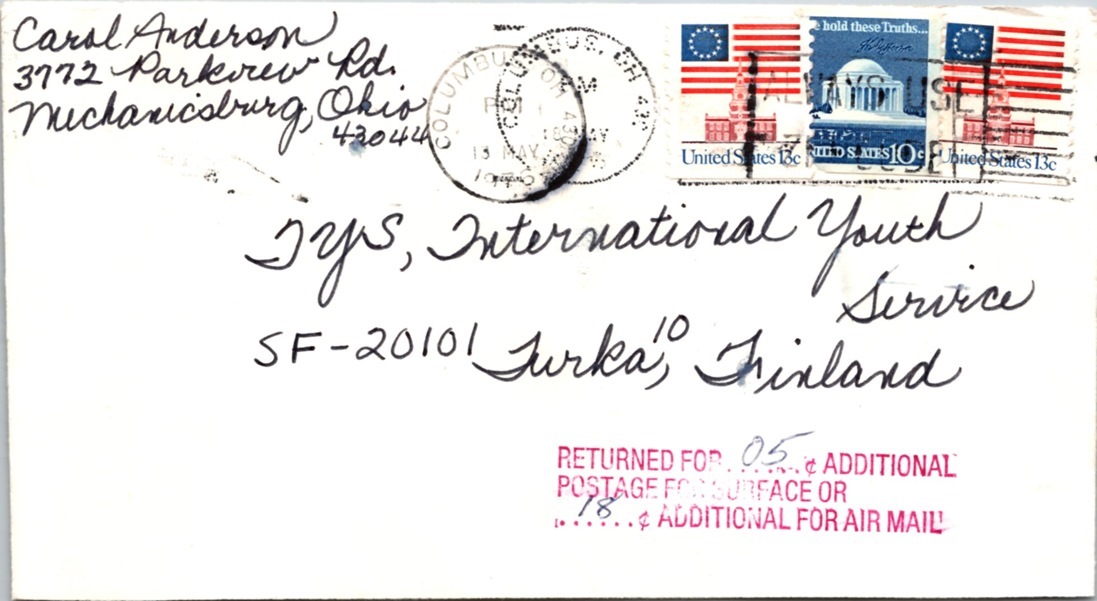 Carol Anderson
3772 Parkview Rd.
Mechanicsburg, Ohio
43044
COLUMBUS, OH
PM
13 MAY
1976
COLUMBUS, OH
M
18 MAY
ALWAYS USE
ZIP CODE
United States 13c
e hold these Truths...
UNITED STATES 10c
United States 13c
IYS, International Youth
Service
SF-20101 Turka, 10 Finland
RETURNED FOR 05 ¢ ADDITIONAL
POSTAGE FOR SURFACE OR
18 ¢ ADDITIONAL FOR AIR MAIL